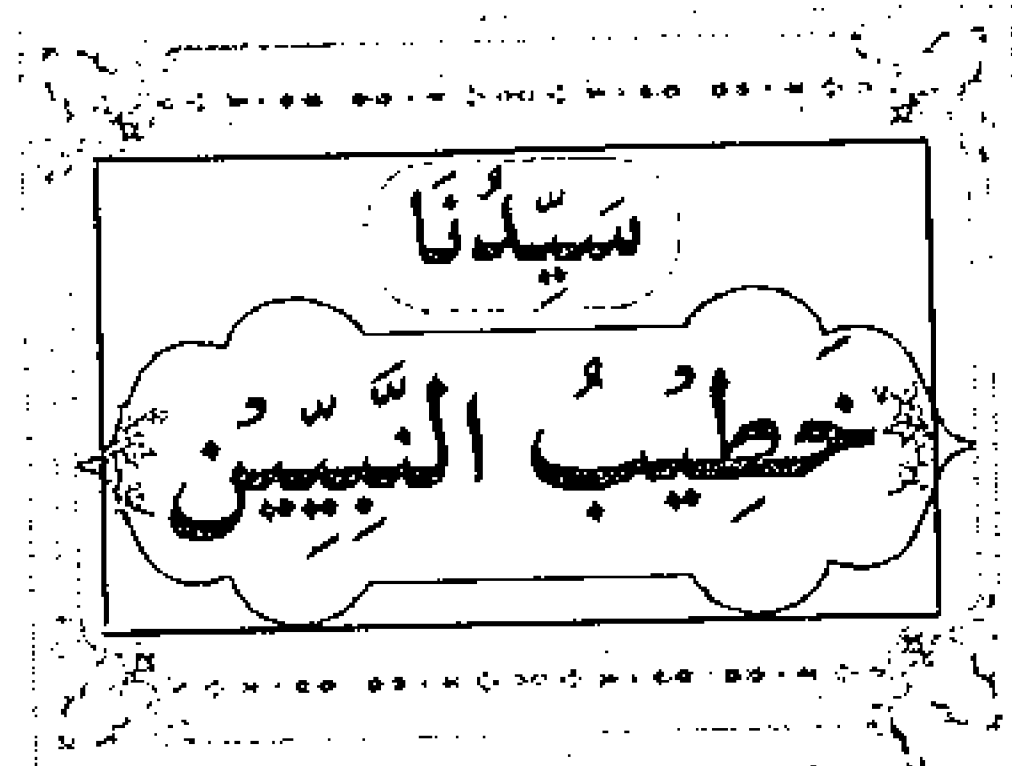 سَيِّدُنَا
خَطِيْبُ النَّبِيِّيْنَ